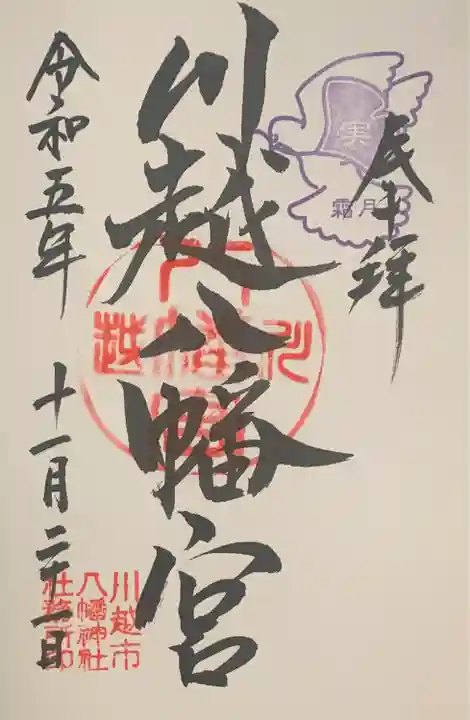 奉拝
実
霜月
川越八幡宮
令和五年
十一月二十一日
川越市
八幡神社
社務所印